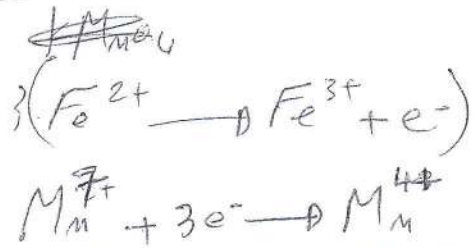 3(Fe²⁺ → Fe³⁺ + e⁻)
Mn⁷⁺ + 3e⁻ → Mn⁴⁺